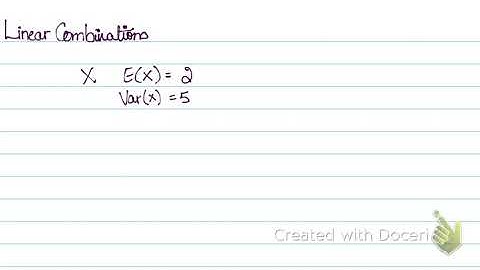 Linear Combinations
X E(X) = 2
Var(x) = 5
Created with Doceri